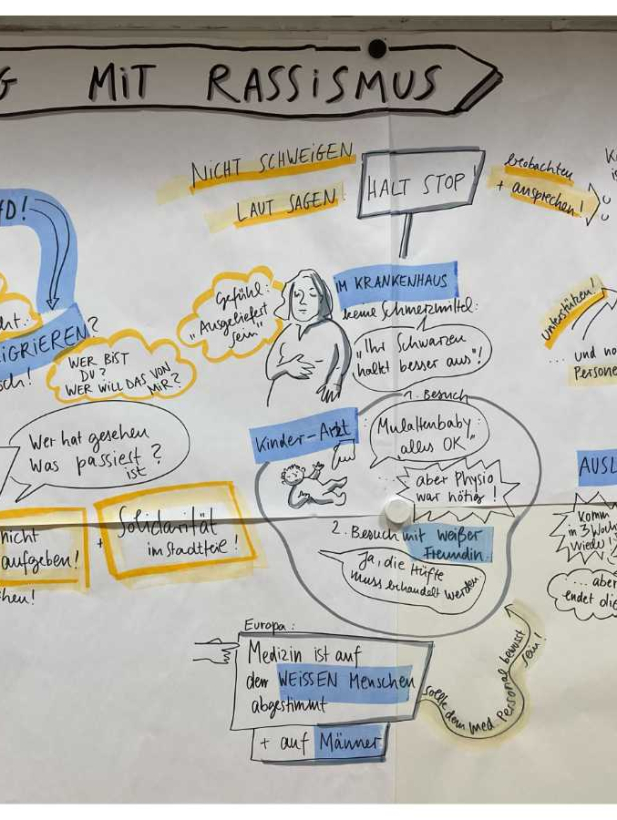 G MIT RASSISMUS
NICHT SCHWEIGEN
LAUT SAGEN
HALT STOP!
beobachten
+ ansprechen!
fD!
IGRIEREN?
sch!
WER BIST
DU?
WER WILL DAS VON
MIR?
Gefühl:
"Ausgeliefert
sein"
IM KRANKENHAUS
keine Schmerzmittel:
"Ihr Schwarzen
haltet besser aus"!
unterstützen!
... und no
Persone
Wer hat gesehen
Was passiert?
ist
nicht
aufgeben!
hen!
+
Solidarität
im Stadtteil!
Kinder-Arzt
1. Besuch
"Mulattenbaby:
alles OK"
... aber Physio
war nötig!
2. Besuch mit weißer
Freundin:
Ja, die Hüfte
muss behandelt werden
AUSL
Komm
in 3 Woch
wieder!
... aber
endet die
Europa:
Medizin ist auf
den WEISSEN Menschen
abgestimmt
+ auf Männer
sollte dem med. Personal bewusst
sein!